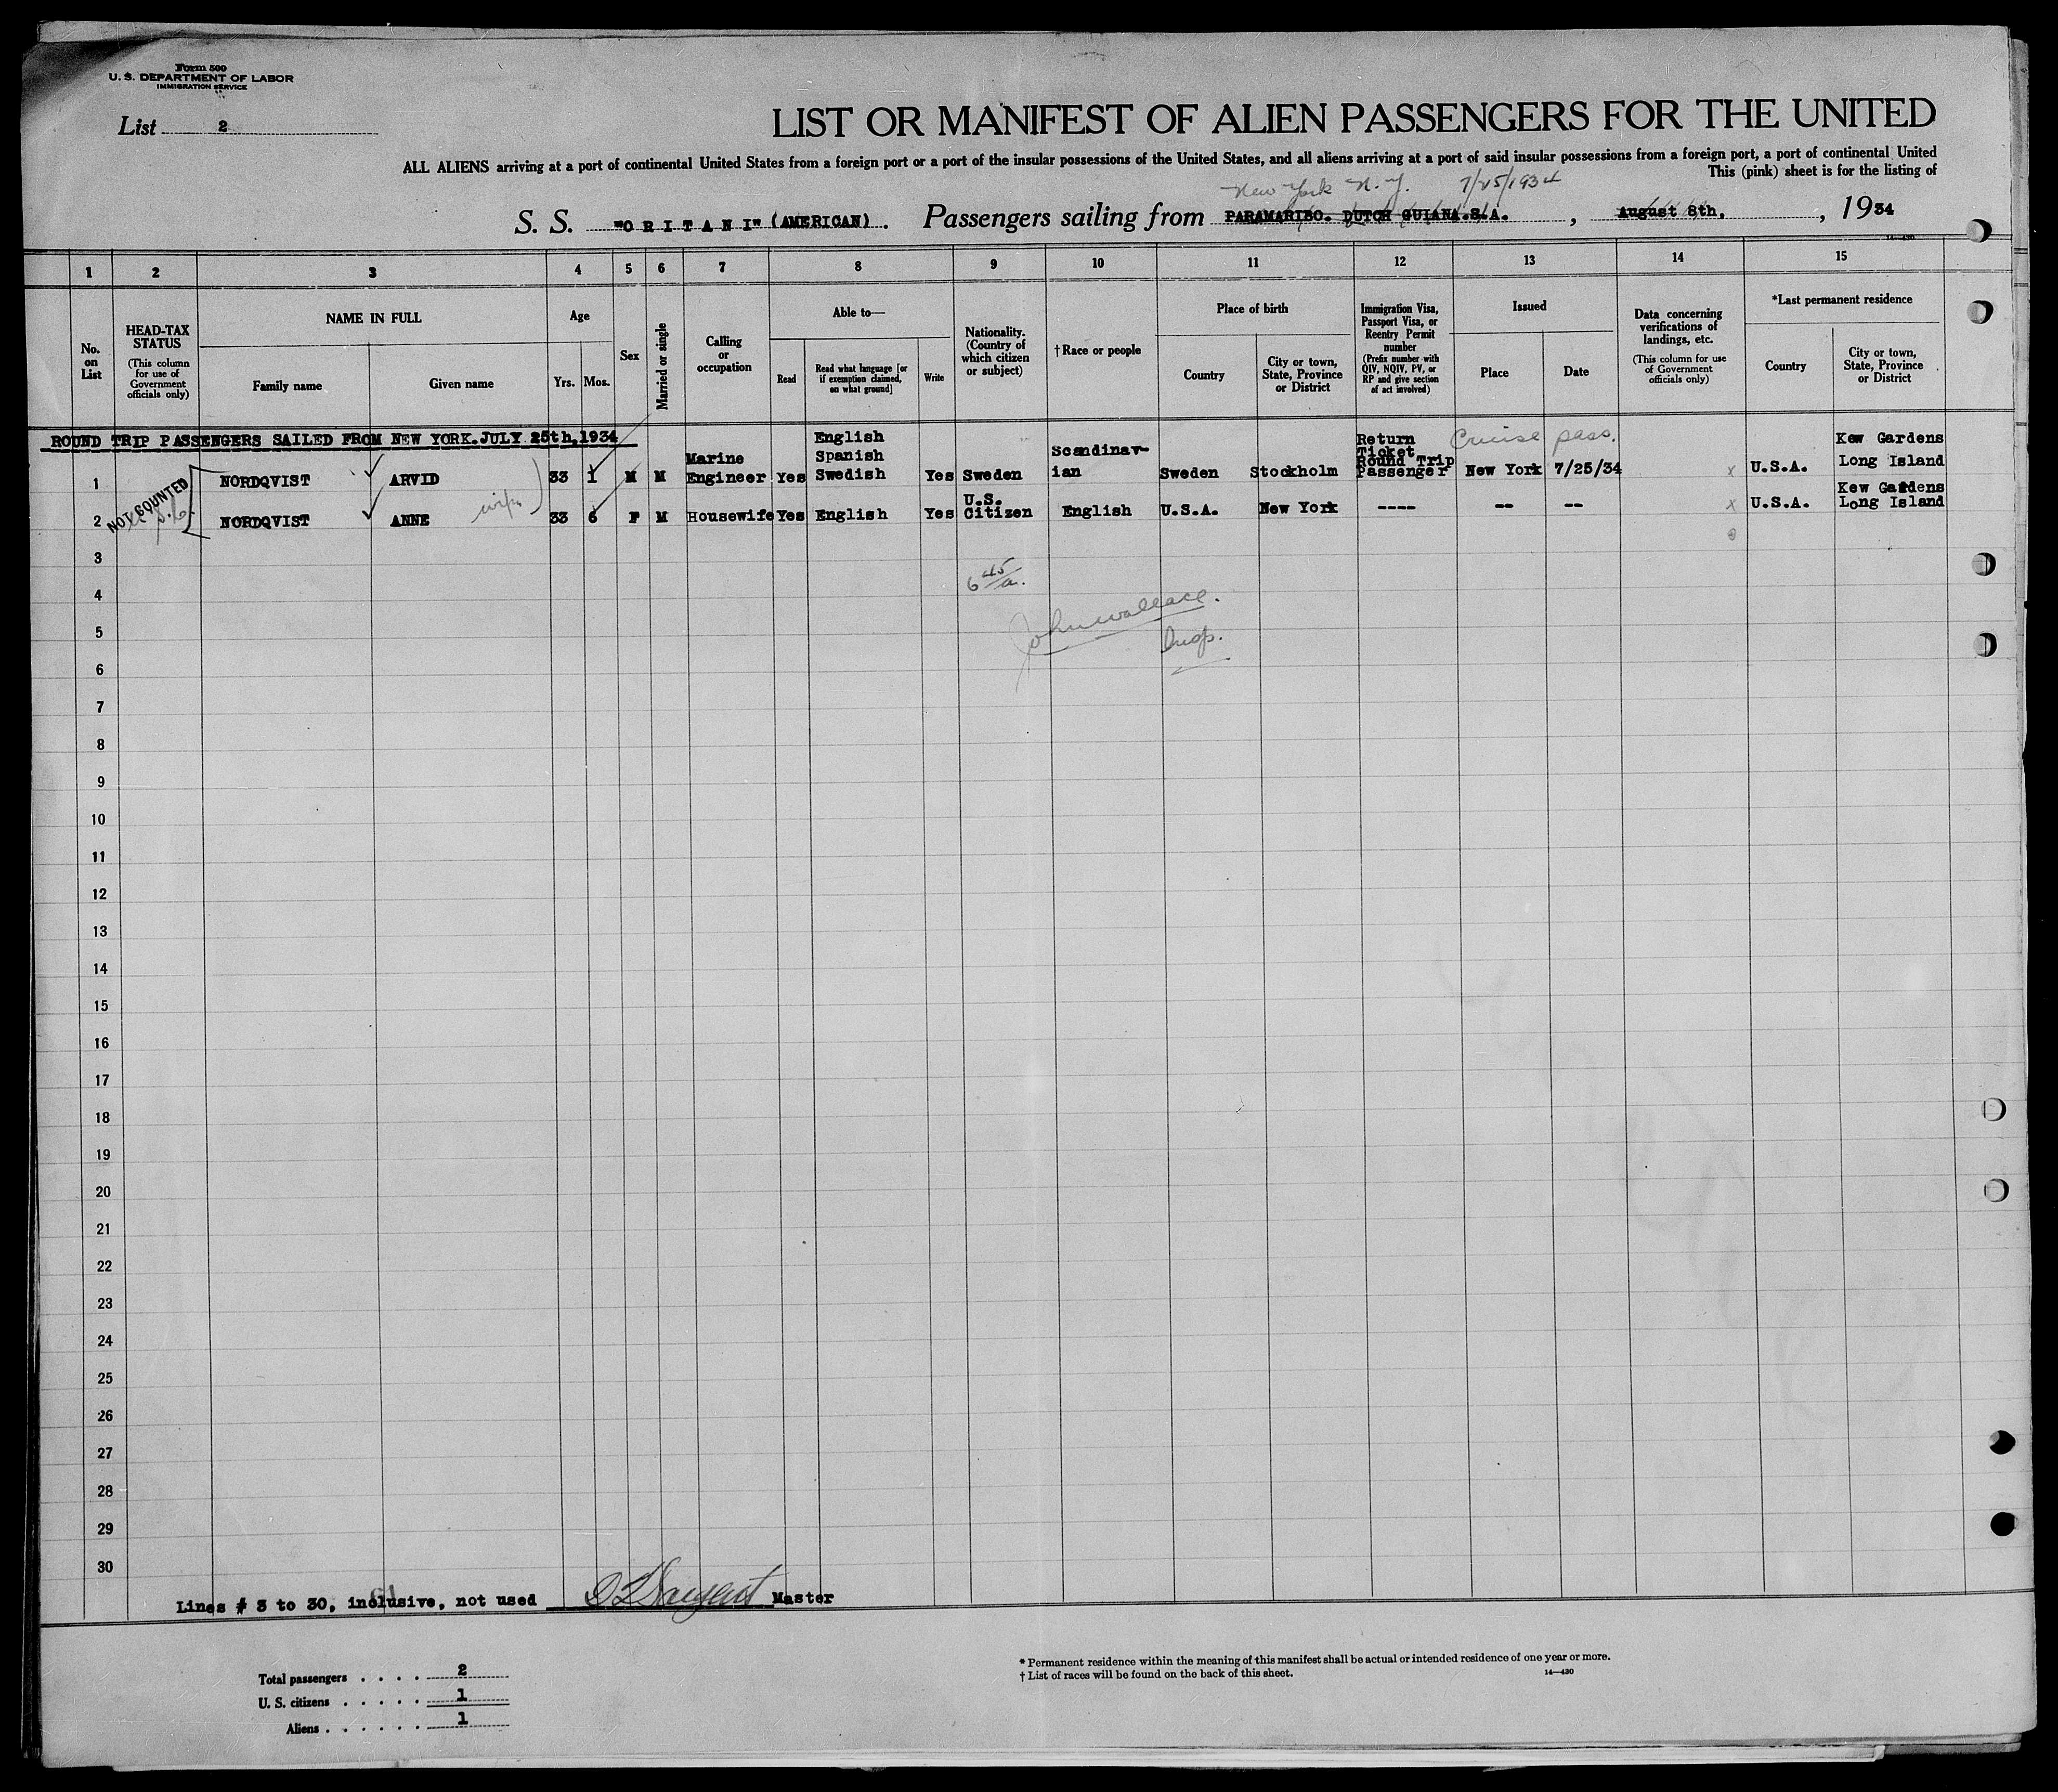 Form 500
U. S. DEPARTMENT OF LABOR
IMMIGRATION SERVICE
List 2
LIST OR MANIFEST OF ALIEN PASSENGERS FOR THE UNITED
ALL ALIENS arriving at a port of continental United States from a foreign port or a port of the insular possessions of the United States, and all aliens arriving at a port of said insular possessions from a foreign port, a port of continental United
This (pink) sheet is for the listing of
New York N.Y. 7/25/1934
S. S. "O R I T A N I" (AMERICAN). Passengers sailing from PARAMARIBO. DUTCH GUIANA.S.A. , August 8th. , 1934
14—430
1 2 3 4 5 6 7 8 9 10 11 12 13 14 15
No. on List
HEAD-TAX STATUS
(This column for use of Government officials only)
NAME IN FULL
Family name
Given name
Age
Yrs.
Mos.
Sex
Married or single
Calling or occupation
Able to—
Read
Read what language [or if exemption claimed, on what ground]
Write
Nationality. (Country of which citizen or subject)
†Race or people
Place of birth
Country
City or town, State, Province or District
Immigration Visa, Passport Visa, or Reentry Permit number
(Prefix number with QIV, NQIV, PV, or RP and give section of act involved)
Issued
Place
Date
Data concerning verifications of landings, etc.
(This column for use of Government officials only)
*Last permanent residence
Country
City or town, State, Province or District
ROUND TRIP PASSENGERS SAILED FROM NEW YORK.JULY 25th,1934
NOT COUNTED
1 NORDQVIST ARVID 33 1 M M Marine Engineer Yes English Spanish Swedish Yes Sweden Scandinav-ian Sweden Stockholm Return Ticket Round Trip Passenger Cruise pass. New York 7/25/34 x U.S.A. Kew Gardens Long Island
2 NORDQVIST ANNE wife 33 6 F M Housewife Yes English Yes U.S. Citizen English U.S.A. New York ---- -- -- x U.S.A. Kew Gardens Long Island
3
6 45/a.
4
John Wallace.
5
Insp.
6
7
8
9
10
11
12
13
14
15
16
17
18
19
20
21
22
23
24
25
26
27
28
29
30
Lines # 3 to 30, inclusive, not used Master
Total passengers . . . . 2
U. S. citizens . . . . . 1
Aliens . . . . . . 1
* Permanent residence within the meaning of this manifest shall be actual or intended residence of one year or more.
† List of races will be found on the back of this sheet.
14—430